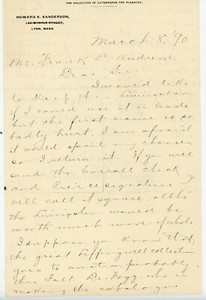 THE COLLECTION OF AUTOGRAPHS FOR PLEASURE.
HOWARD K. SANDERSON,
LYNN, MASS.
March 8, '90
Mr. Frank D. Andrews,
Dear Sir:
I would like
to keep the Livingston
if I could use it in trade
but the first name is so
badly hurt, I am afraid
it would spoil my chances
so I return it. If you will
send the check
and Peirce signature I
will call it square altho
the Livingston would be
worth much more if whole
I suppose you know that
the great Tefft collection
goes to auction probably
this Fall. Dr. Fogg who is
making the catalogue